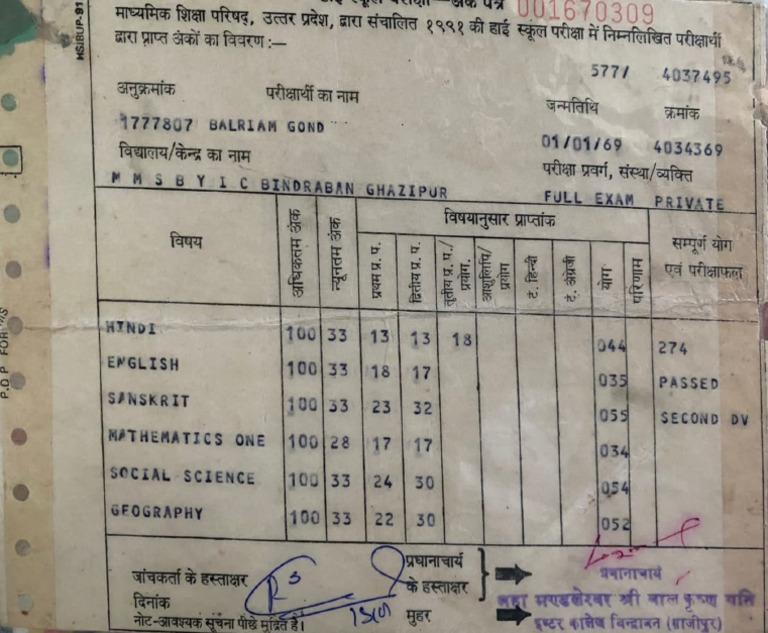 हाई स्कूल परीक्षा—अंक पत्र 001670309
माध्यमिक शिक्षा परिषद्, उत्तर प्रदेश, द्वारा संचालित १९९१ की हाई स्कूल परीक्षा में निम्नलिखित परीक्षार्थी
द्वारा प्राप्त अंकों का विवरण :—
HSIBUP-91
577/ 4037495
अनुक्रमांक परीक्षार्थी का नाम जन्मतिथि क्रमांक
1777807 BALRIAM GOND 01/01/69 4034369
विद्यालय/केन्द्र का नाम परीक्षा प्रवर्ग, संस्था/व्यक्ति
M M S B Y I C BINDRABAN GHAZIPUR FULL EXAM PRIVATE
विषय अधिकतम अंक न्यूनतम अंक विषयानुसार प्राप्तांक सम्पूर्ण योग
एवं परीक्षाफल
प्रथम प्र. प. द्वितीय प्र. प. तृतीय प्र. प./प्रयोग. आशुलिपि/प्रयोग टं. हिन्दी टं. अंग्रेजी योग परिणाम
HINDI 100 33 13 13 18 044 274
ENGLISH 100 33 18 17 035 PASSED
SANSKRIT 100 33 23 32 055 SECOND DV
MATHEMATICS ONE 100 28 17 17 034
SOCIAL SCIENCE 100 33 24 30 054
GEOGRAPHY 100 33 22 30 052
P.D.P FOR
जांचकर्ता के हस्ताक्षर प्रधानाचार्य
के हस्ताक्षर
दिनांक मुहर
नोट-आवश्यक सूचना पीछे मुद्रित है।
प्रधानाचार्य
महा मण्डलेश्वर श्री बाल कृष्ण यति
इण्टर कालेज बिन्द्राबन (गाजीपुर)